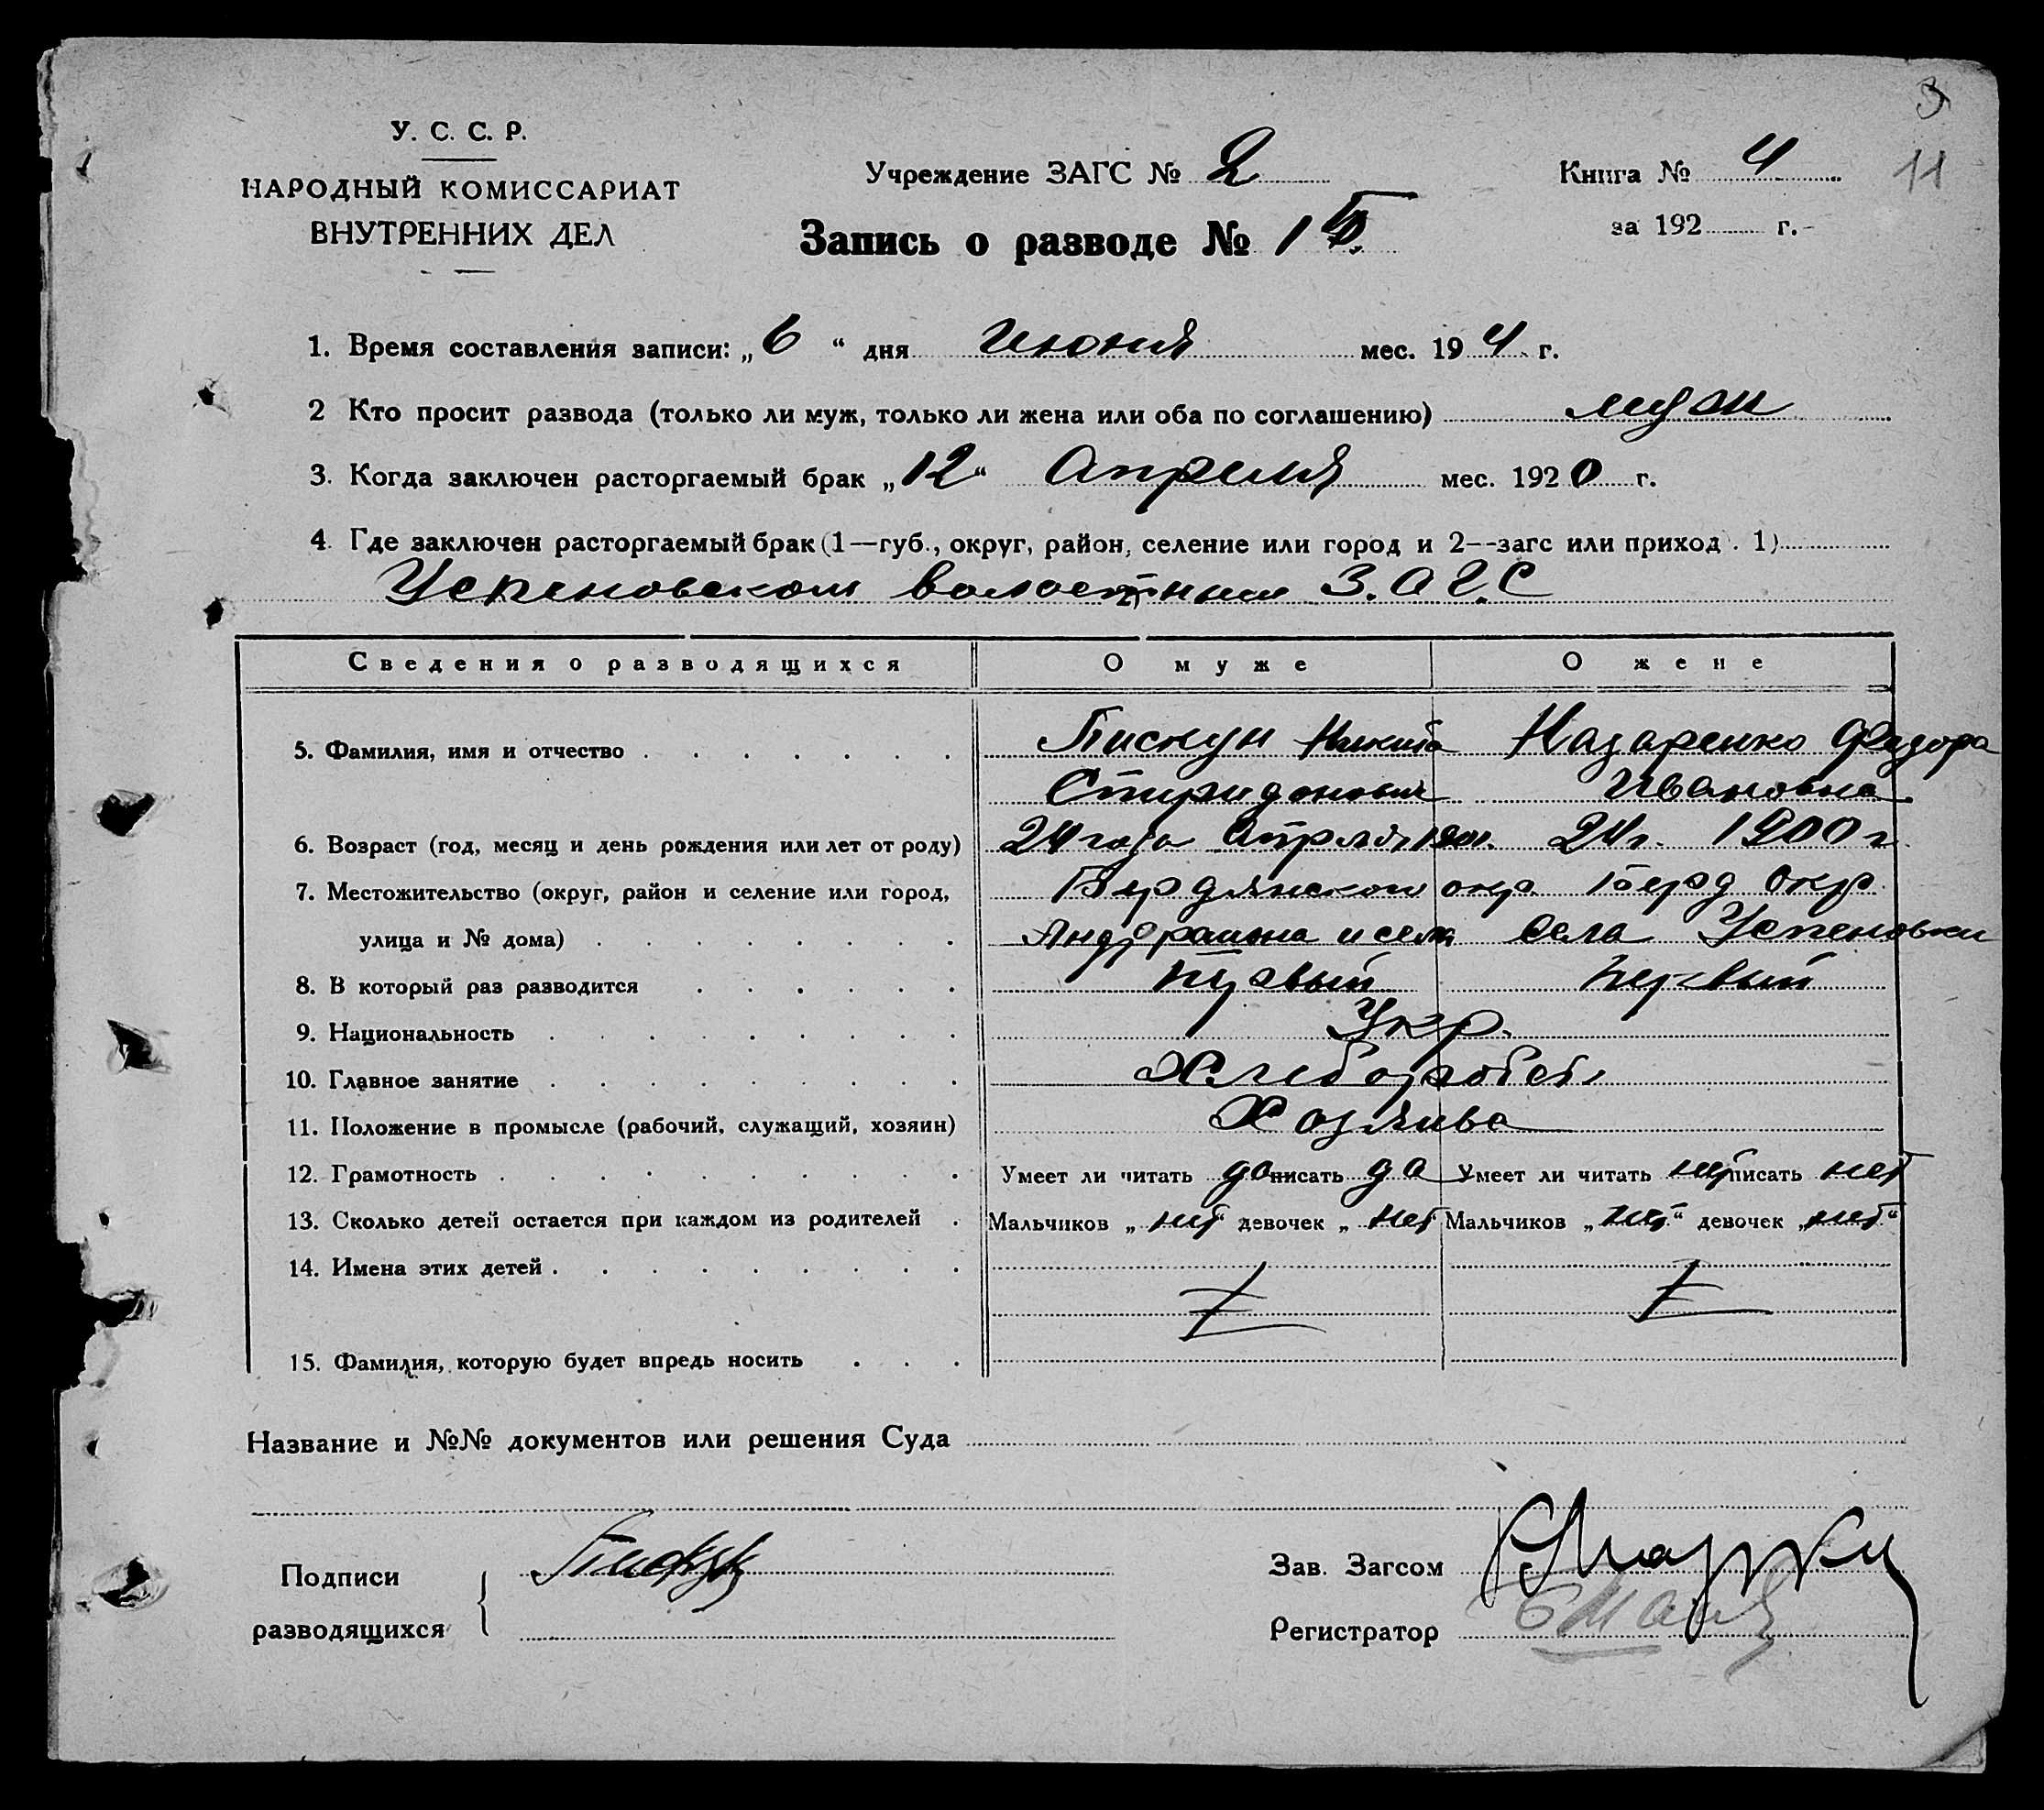 3
11
У. С. С. Р.
НАРОДНЫЙ КОМИССАРИАТ
ВНУТРЕННИХ ДЕЛ
Учреждение ЗАГС № 2
Книга № 4
за 192 г.
Запись о разводе № 1
1. Время составления записи: „6“ дня июня мес. 19 4 г.
2 Кто просит развода (только ли муж, только ли жена или оба по соглашению) муж
3. Когда заключен расторгаемый брак „12“ Апреля мес. 1920 г.
4. Где заключен расторгаемый брак (1—губ., округ, район, селение или город и 2--загс или приход). 1)
Успеновском волостным З.А.Г.С
2)
Сведения о разводящихся О муже О жене
5. Фамилия, имя и отчество Пискун Никита Назаренко Федора
Спиридонович Ивановна
6. Возраст (год, месяц и день рождения или лет от роду) 24 года Апреля 1901. 24 г. 1900 г.
7. Местожительство (округ, район и селение или город, Бердянской окр. Берд Окр.
улица и № дома) района и села Села Успеновки
8. В который раз разводится первый первый
9. Национальность Укр.
10. Главное занятие Хлебороб
11. Положение в промысле (рабочий, служащий, хозяин)
12. Грамотность Умеет ли читать да писать да Умеет ли читать нет писать нет
13. Сколько детей остается при каждом из родителей Мальчиков „нет“ девочек „нет Мальчиков „нет“ девочек „нет“
14. Имена этих детей
15. Фамилия, которую будет впредь носить
Название и №№ документов или решения Суда
Подписи
разводящихся
Пискун
Зав. Загсом
Регистратор